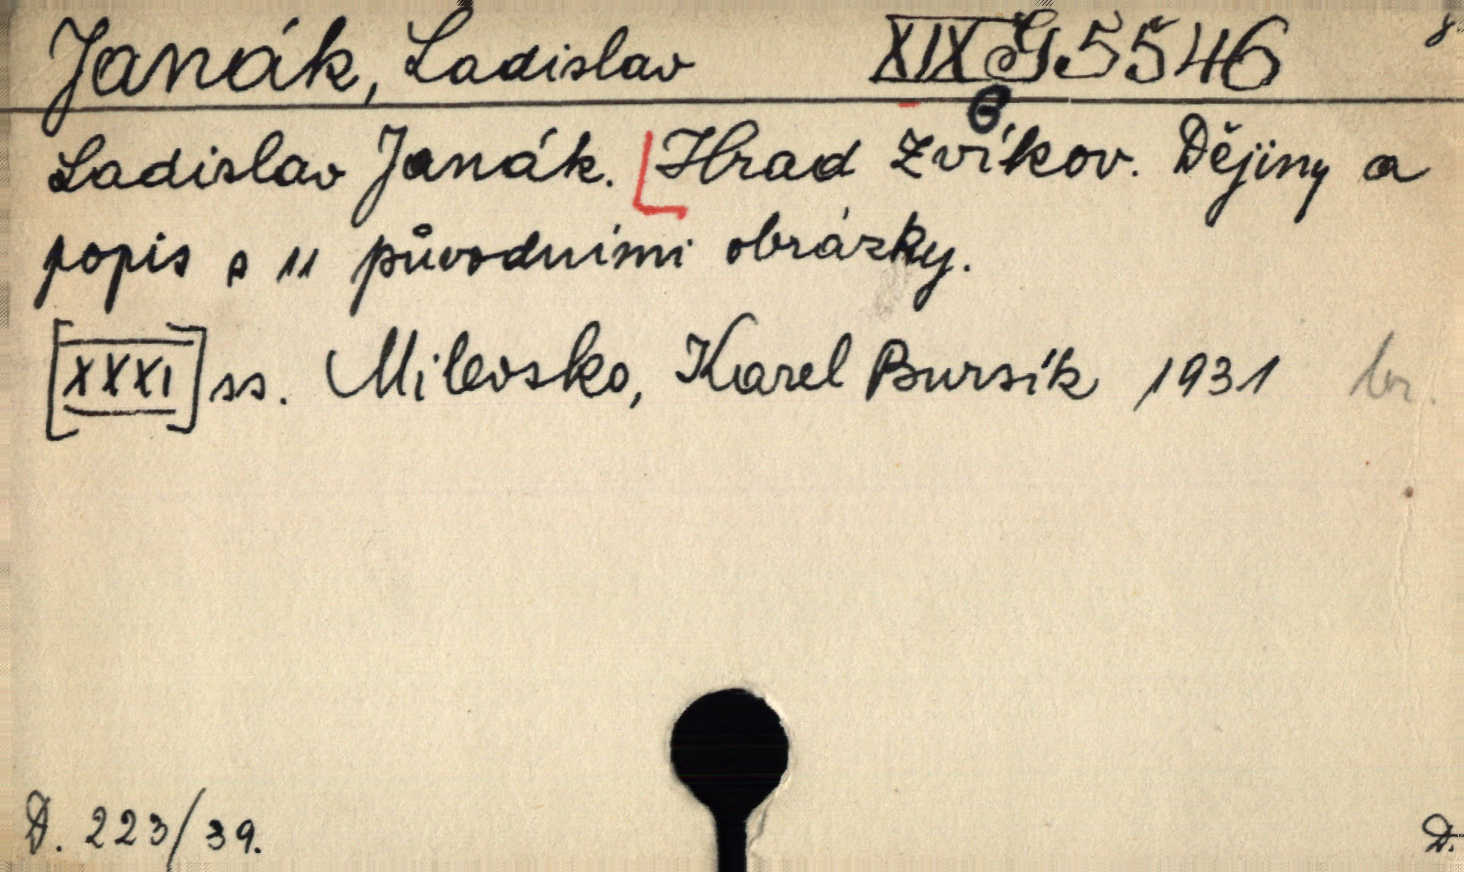 Janák, Ladislav XIX G 5546 8.
Ladislav Janák. Hrad Zvíkov. Dějiny a
popis s 11 původními obrázky.
[XXXI] ss. Milevsko, Karel Bursík 1931 br.
D. 223/39. D.